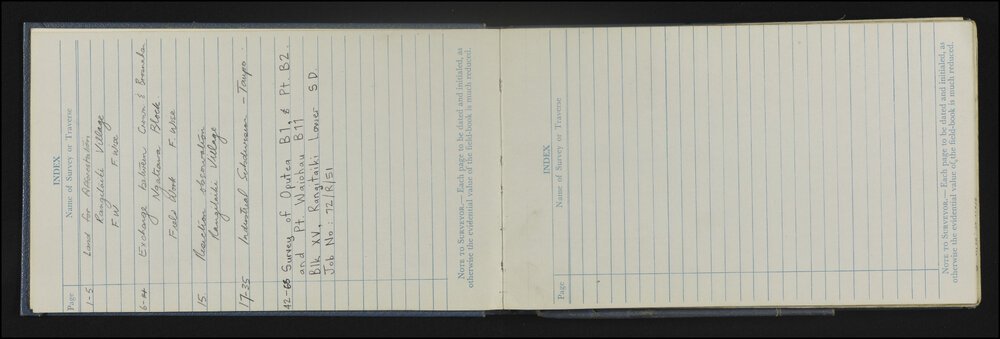 INDEX
Page Name of Survey or Traverse
1-5 Land for Afforestation
Rangitaiki Village
F W F. Wise
6-14 Exchange between Crown & Brosnahan
Ngatiawa Block
Field Work F. Wise
15 Resection observation
Rangitaiki Village
17-35 Industrial Subdivision - Taupo.
42-65 Survey of Oputea B1, & Pt. B2.
and Pt. Waiohau B11
Blk XV, Rangitaiki Lower S.D.
Job No: 72/R/51
NOTE TO SURVEYOR.— Each page to be dated and initialed, as
otherwise the evidential value of the field-book is much reduced.
INDEX
Page Name of Survey or Traverse
NOTE TO SURVEYOR.— Each page to be dated and initialed, as
otherwise the evidential value of the field-book is much reduced.